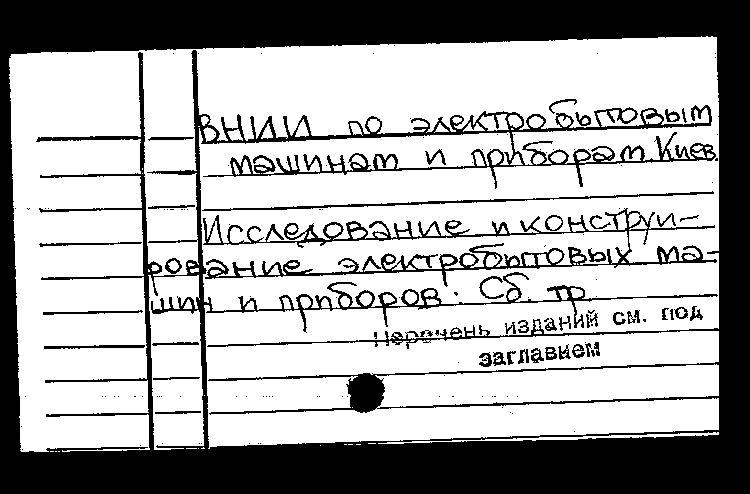 ВНИИ по электробытовым
машинам и приборам. Киев.
Исследование и конструи-
рование электробытовых ма-
шин и приборов: Сб. тр
Перечень изданий см. под
заглавием